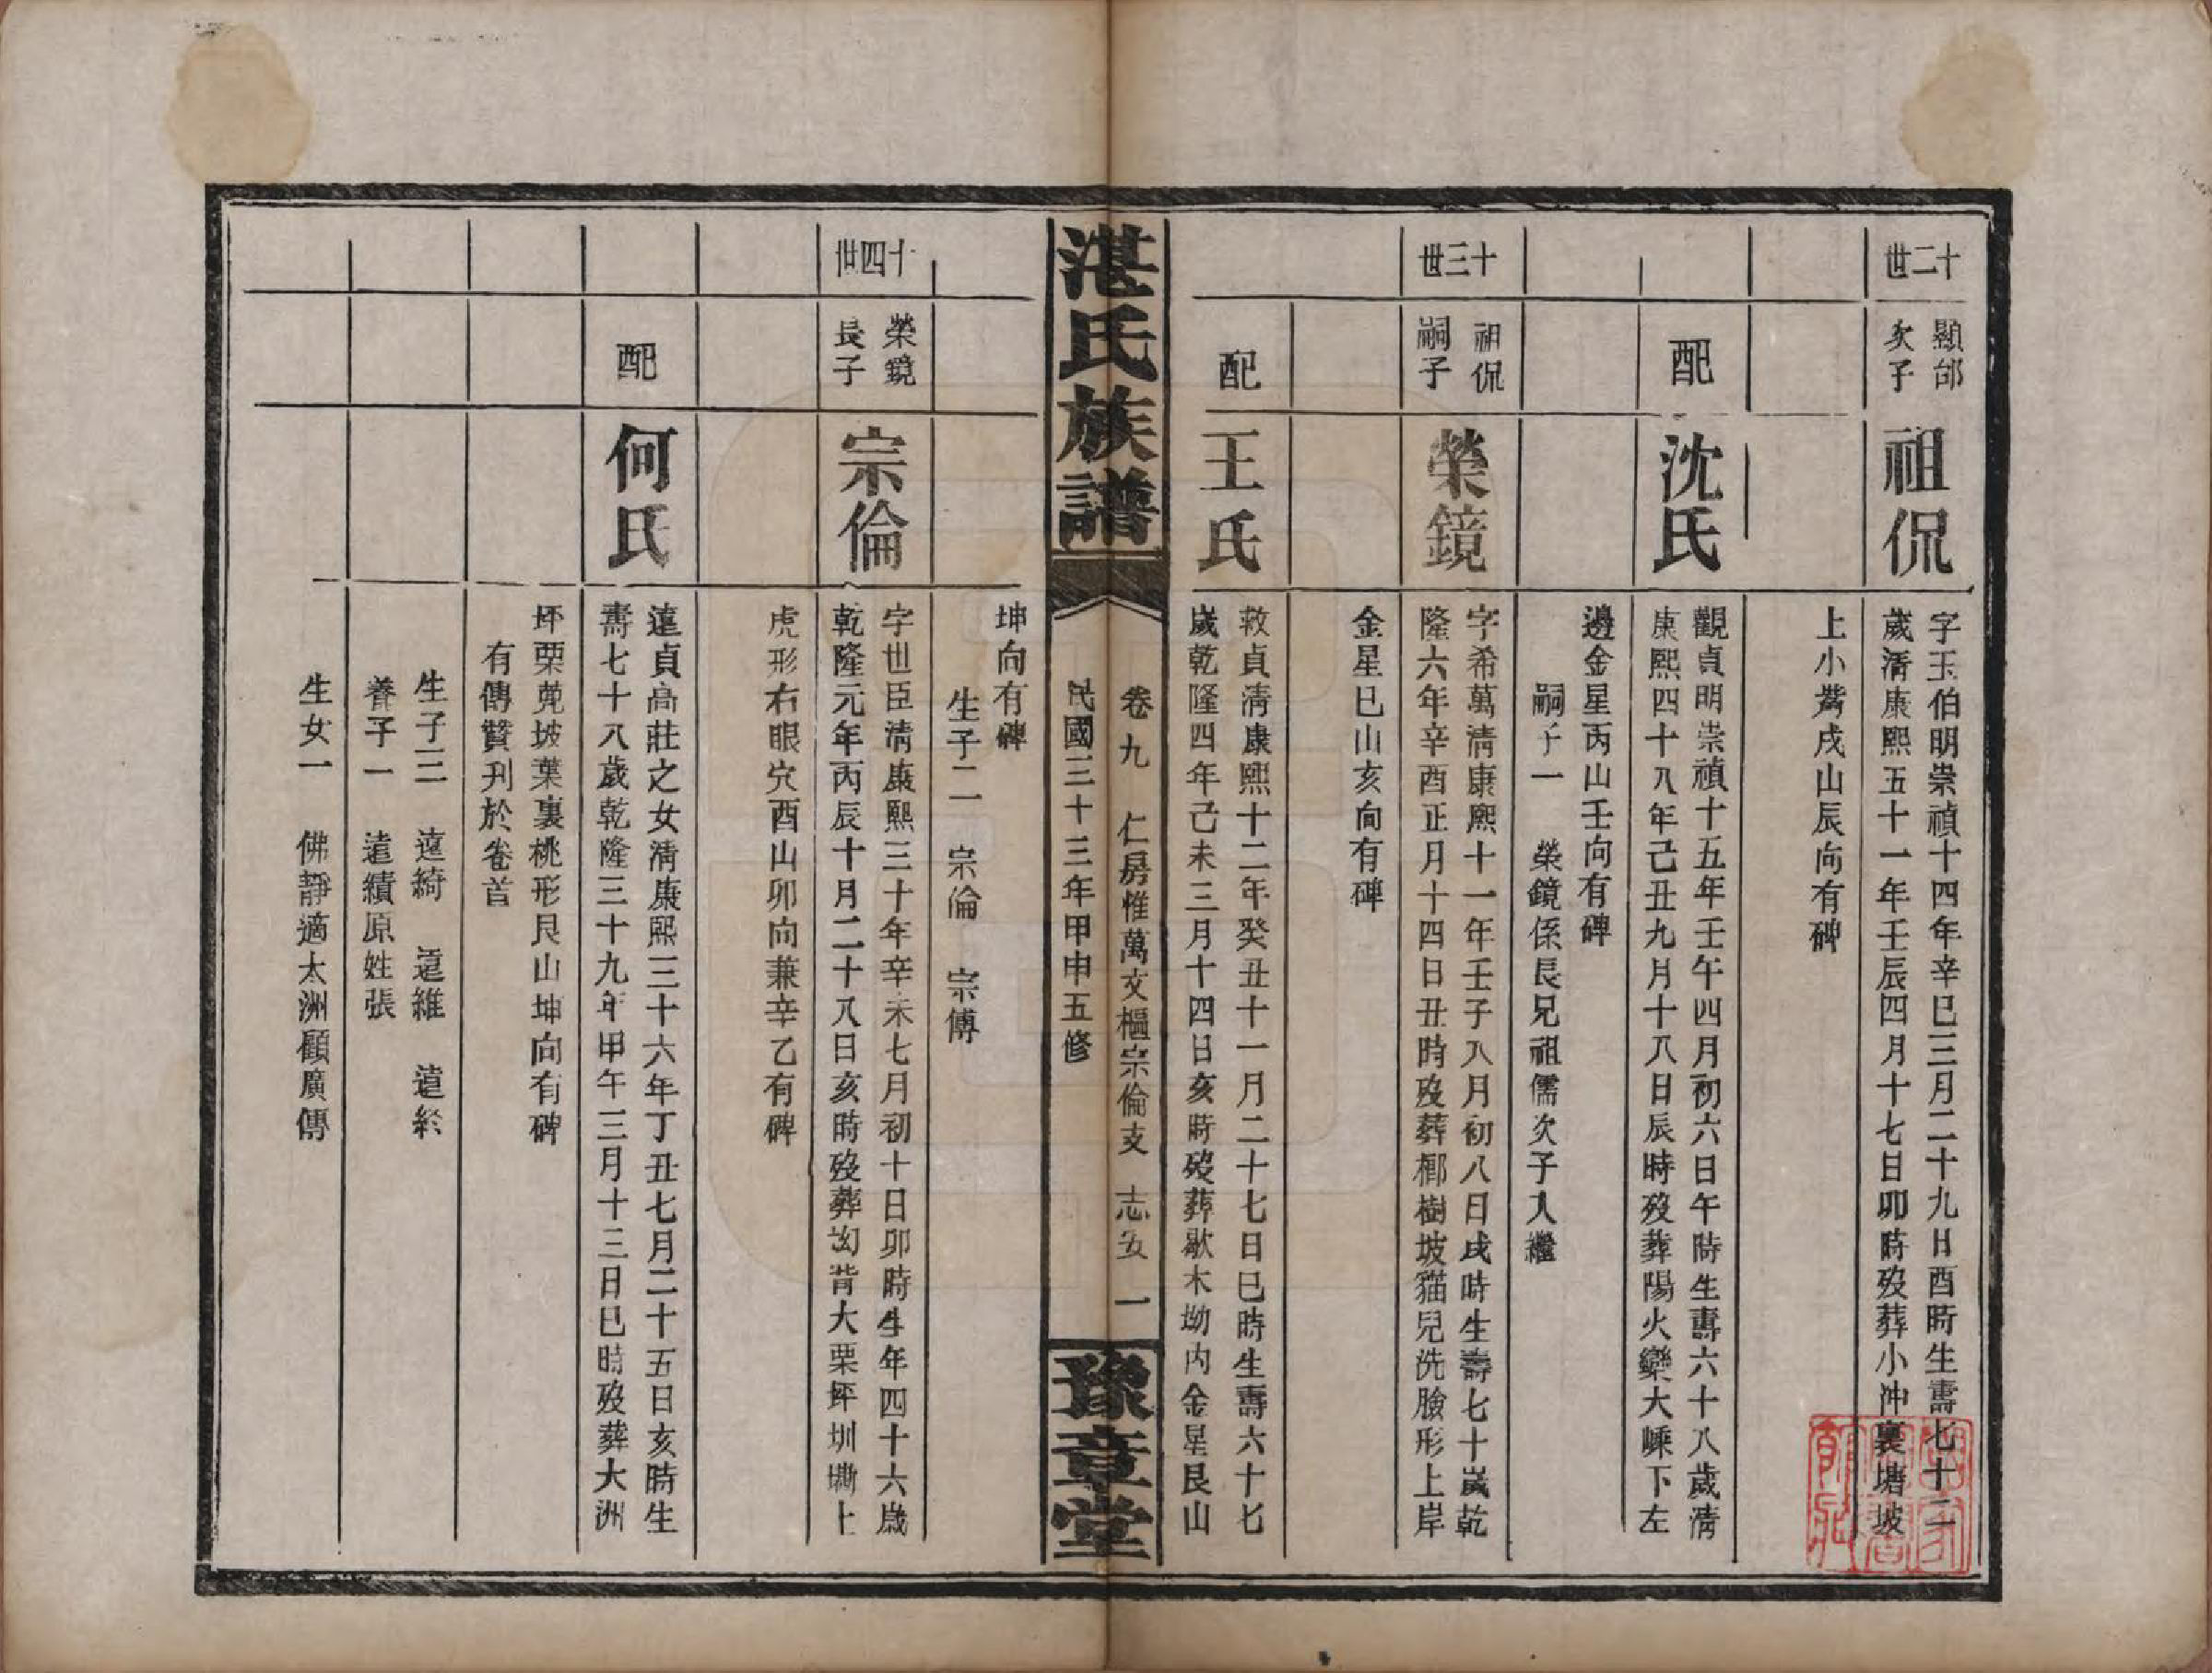 十二世
顯邰
次子
祖侃
字玉伯明崇禎十四年辛巳三月二十九日酉時生壽七十二
歲淸康熙五十一年壬辰四月十七日卯時歿葬小沖裏塘坡
上小嘴戌山辰向有碑
配
沈氏
觀貞明崇禎十五年壬午四月初六日午時生壽六十八歲淸
康熙四十八年己丑九月十八日辰時歿葬陽火欒大嵊下左
邊金星丙山壬向有碑
嗣子一 榮鏡係長兄祖儒次子入繼
十三世
祖侃
嗣子
榮鏡
字希萬淸康熙十一年壬子八月初八日戌時生壽七十歲乾
隆六年辛酉正月十四日丑時歿葬梛樹坡猫兒洗臉形上岸
金星巳山亥向有碑
配
王氏
救貞淸康熙十二年癸丑十一月二十七日巳時生壽六十七
歲乾隆四年己未三月十四日亥時歿葬歇木坳內金星艮山
湛氏族譜
卷九 仁房惟萬文樞宗倫支 志安 一
民國三十三年甲申五修
豫章堂
坤向有碑
生子二 宗倫 宗傅
十四世
榮鏡
長子
宗倫
字世臣淸康熙三十年辛未七月初十日卯時生年四十六歲
乾隆元年丙辰十月二十八日亥時歿葬坳背大栗坪圳墈上
虎形右眼穴酉山卯向兼辛乙有碑
配
何氏
遠貞高莊之女淸康熙三十六年丁丑七月二十五日亥時生
壽七十八歲乾隆三十九年甲午三月十三日巳時歿葬大洲
坪栗蔸坡葉裏桃形艮山坤向有碑
有傳贊刋於卷首
生子三 遠綺 遠維 遠終
養子一 遠續原姓張
生女一 佛靜適太洲顧廣傳